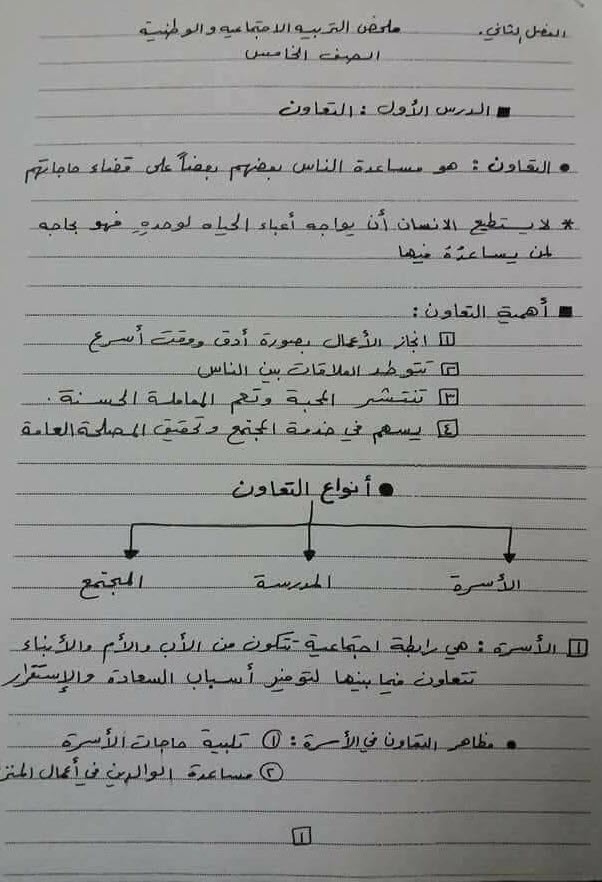 الفصل الثاني. ملخص التربيه الاجتماعيه والوطنية
الصف الخامس
■ الدرس الأول : التعاون
● التعاون : هو مساعدة الناس بعضهم بعضاً على قضاء حاجاتهم
* لا يستطيع الانسان أن يواجه أعباء الحياه لوحدهِ فهو بحاجه
لمن يساعدهُ فيها
■ أهمية التعاون :
١ انجاز الأعمال بصورة أدق ووقت أسرع
٢ تتوطد العلاقات بين الناس
٣ تنتشر المحبة وتعم المعاملة الحسنة .
٤ يسهم في خدمة المجتمع وتحقيق المصلحة العامة
● أنواع التعاون
الأسرة المدرسة المجتمع
١ الأسرة : هي رابطة اجتماعية تتكون من الأب والأم والأبناء
تتعاون فيما بينها لتوفير أسباب السعادة والإستقرار
● مظاهر التعاون في الأسرة : ١ تلبية حاجات الأسرة
٢ مساعدة الوالدين في أعمال المنز
١